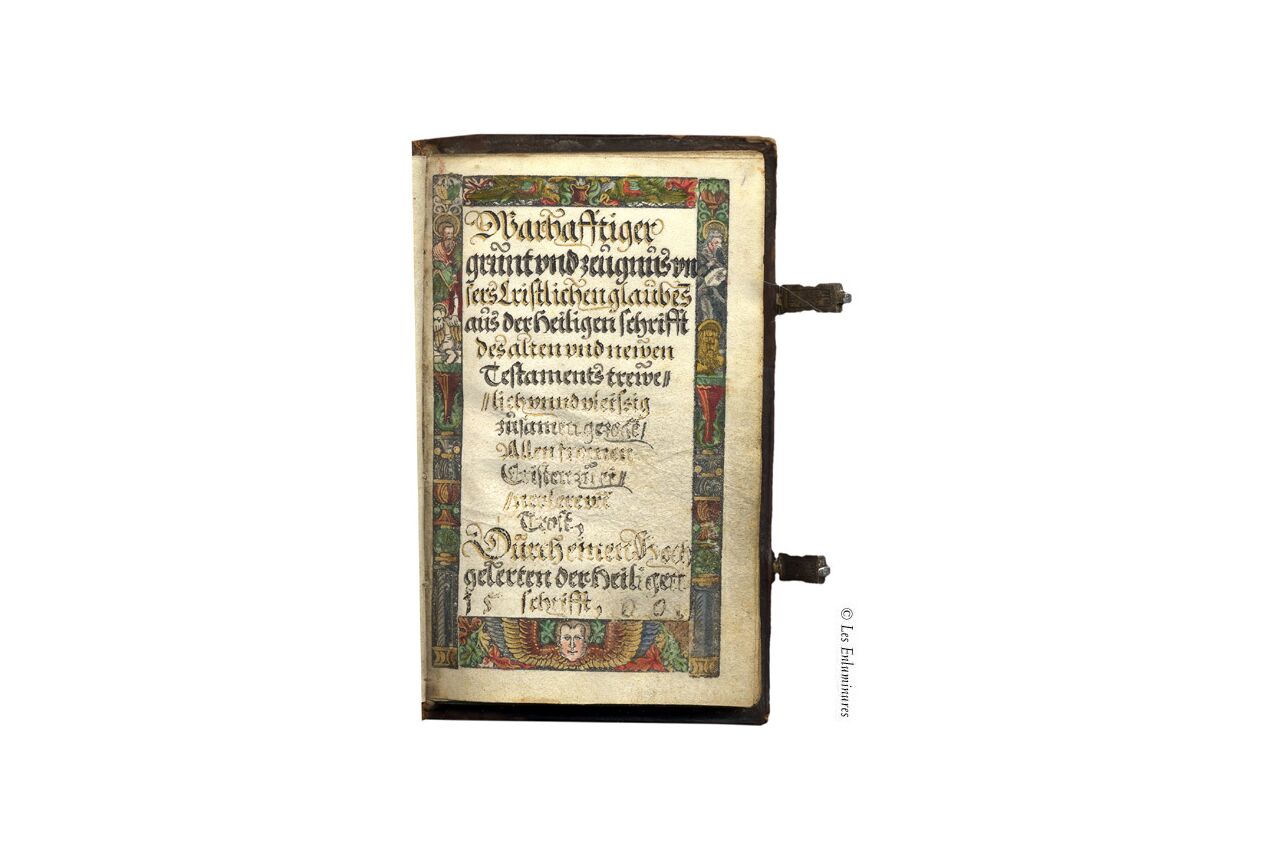 Warhafftiger
grünt vnd zeügnüs vn
sers Cristlichen glaübēs
aüs der Heiligen schrifft
des alten vnd newen
Testaments trewe//
//lich vnnd vleissig
züsamen
Allen fromen
Cristen zü ei//
Trost,
Dürch einen Hoch
gelerten der Heiligen
15 schrifft, 
© Les Enluminures